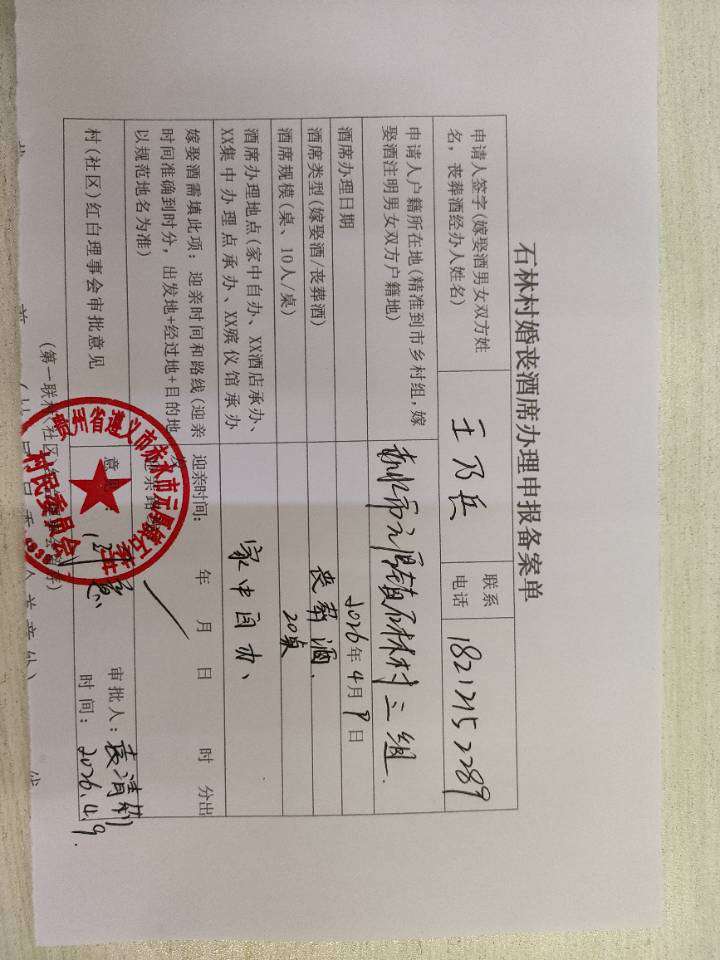 石林村婚丧酒席办理申报备案单
申请人签字(嫁娶酒男女双方姓名，丧葬酒经办人姓名)
王乃兵
联系电话
18212152289
申请人户籍所在地(精准到市乡村组，嫁娶酒注明男女双方户籍地)
赤水市元厚镇石林村三组
酒席办理日期
2026年4月9日
酒席类型(嫁娶酒/丧葬酒)
丧葬酒
酒席规模(桌、10人/桌)
20桌
酒席办理地点(家中自办、XX酒店承办、XX集中办理点承办、XX殡仪馆承办
家中自办、
嫁娶酒需填此项：迎亲时间和路线(迎亲时间准确到时分，出发地+经过地+目的地以规范地名为准)
迎亲时间： 年 月 日 时 分出
村(社区)红白理事会审批意见
意见：同意
审批人：袁清
时间：2026.4.9.
贵州省遵义市赤水市元厚镇石林村
村民委员会